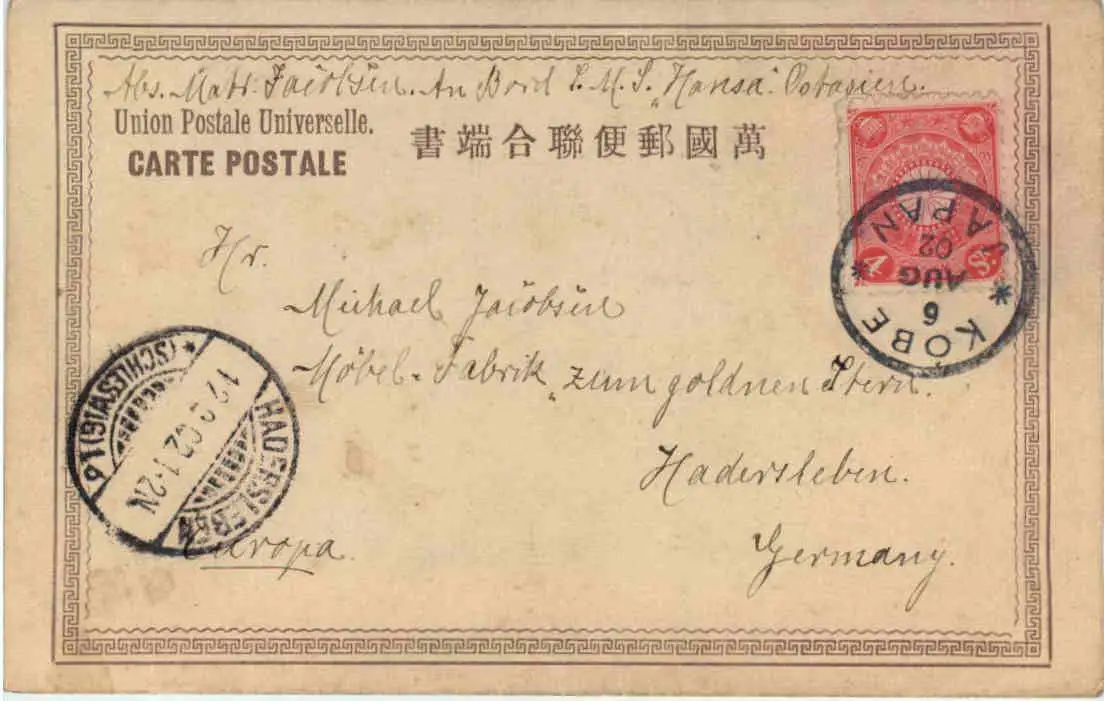 Abs. Matr. Jacobsen. An Bord S. M. S. „Hansa“. Ostasien.
Union Postale Universelle.
書端合聯便郵國萬
CARTE POSTALE
4 Sn.
KOBE JAPAN
6
AUG
02
Hr.
Michael Jacobsen
Möbel-Fabrik „zum goldnen Stern.
Hadersleben.
Germany.
Europa.
HADERSLEBEN
*(SCHLESWIG)1 b
9.02 1-2N